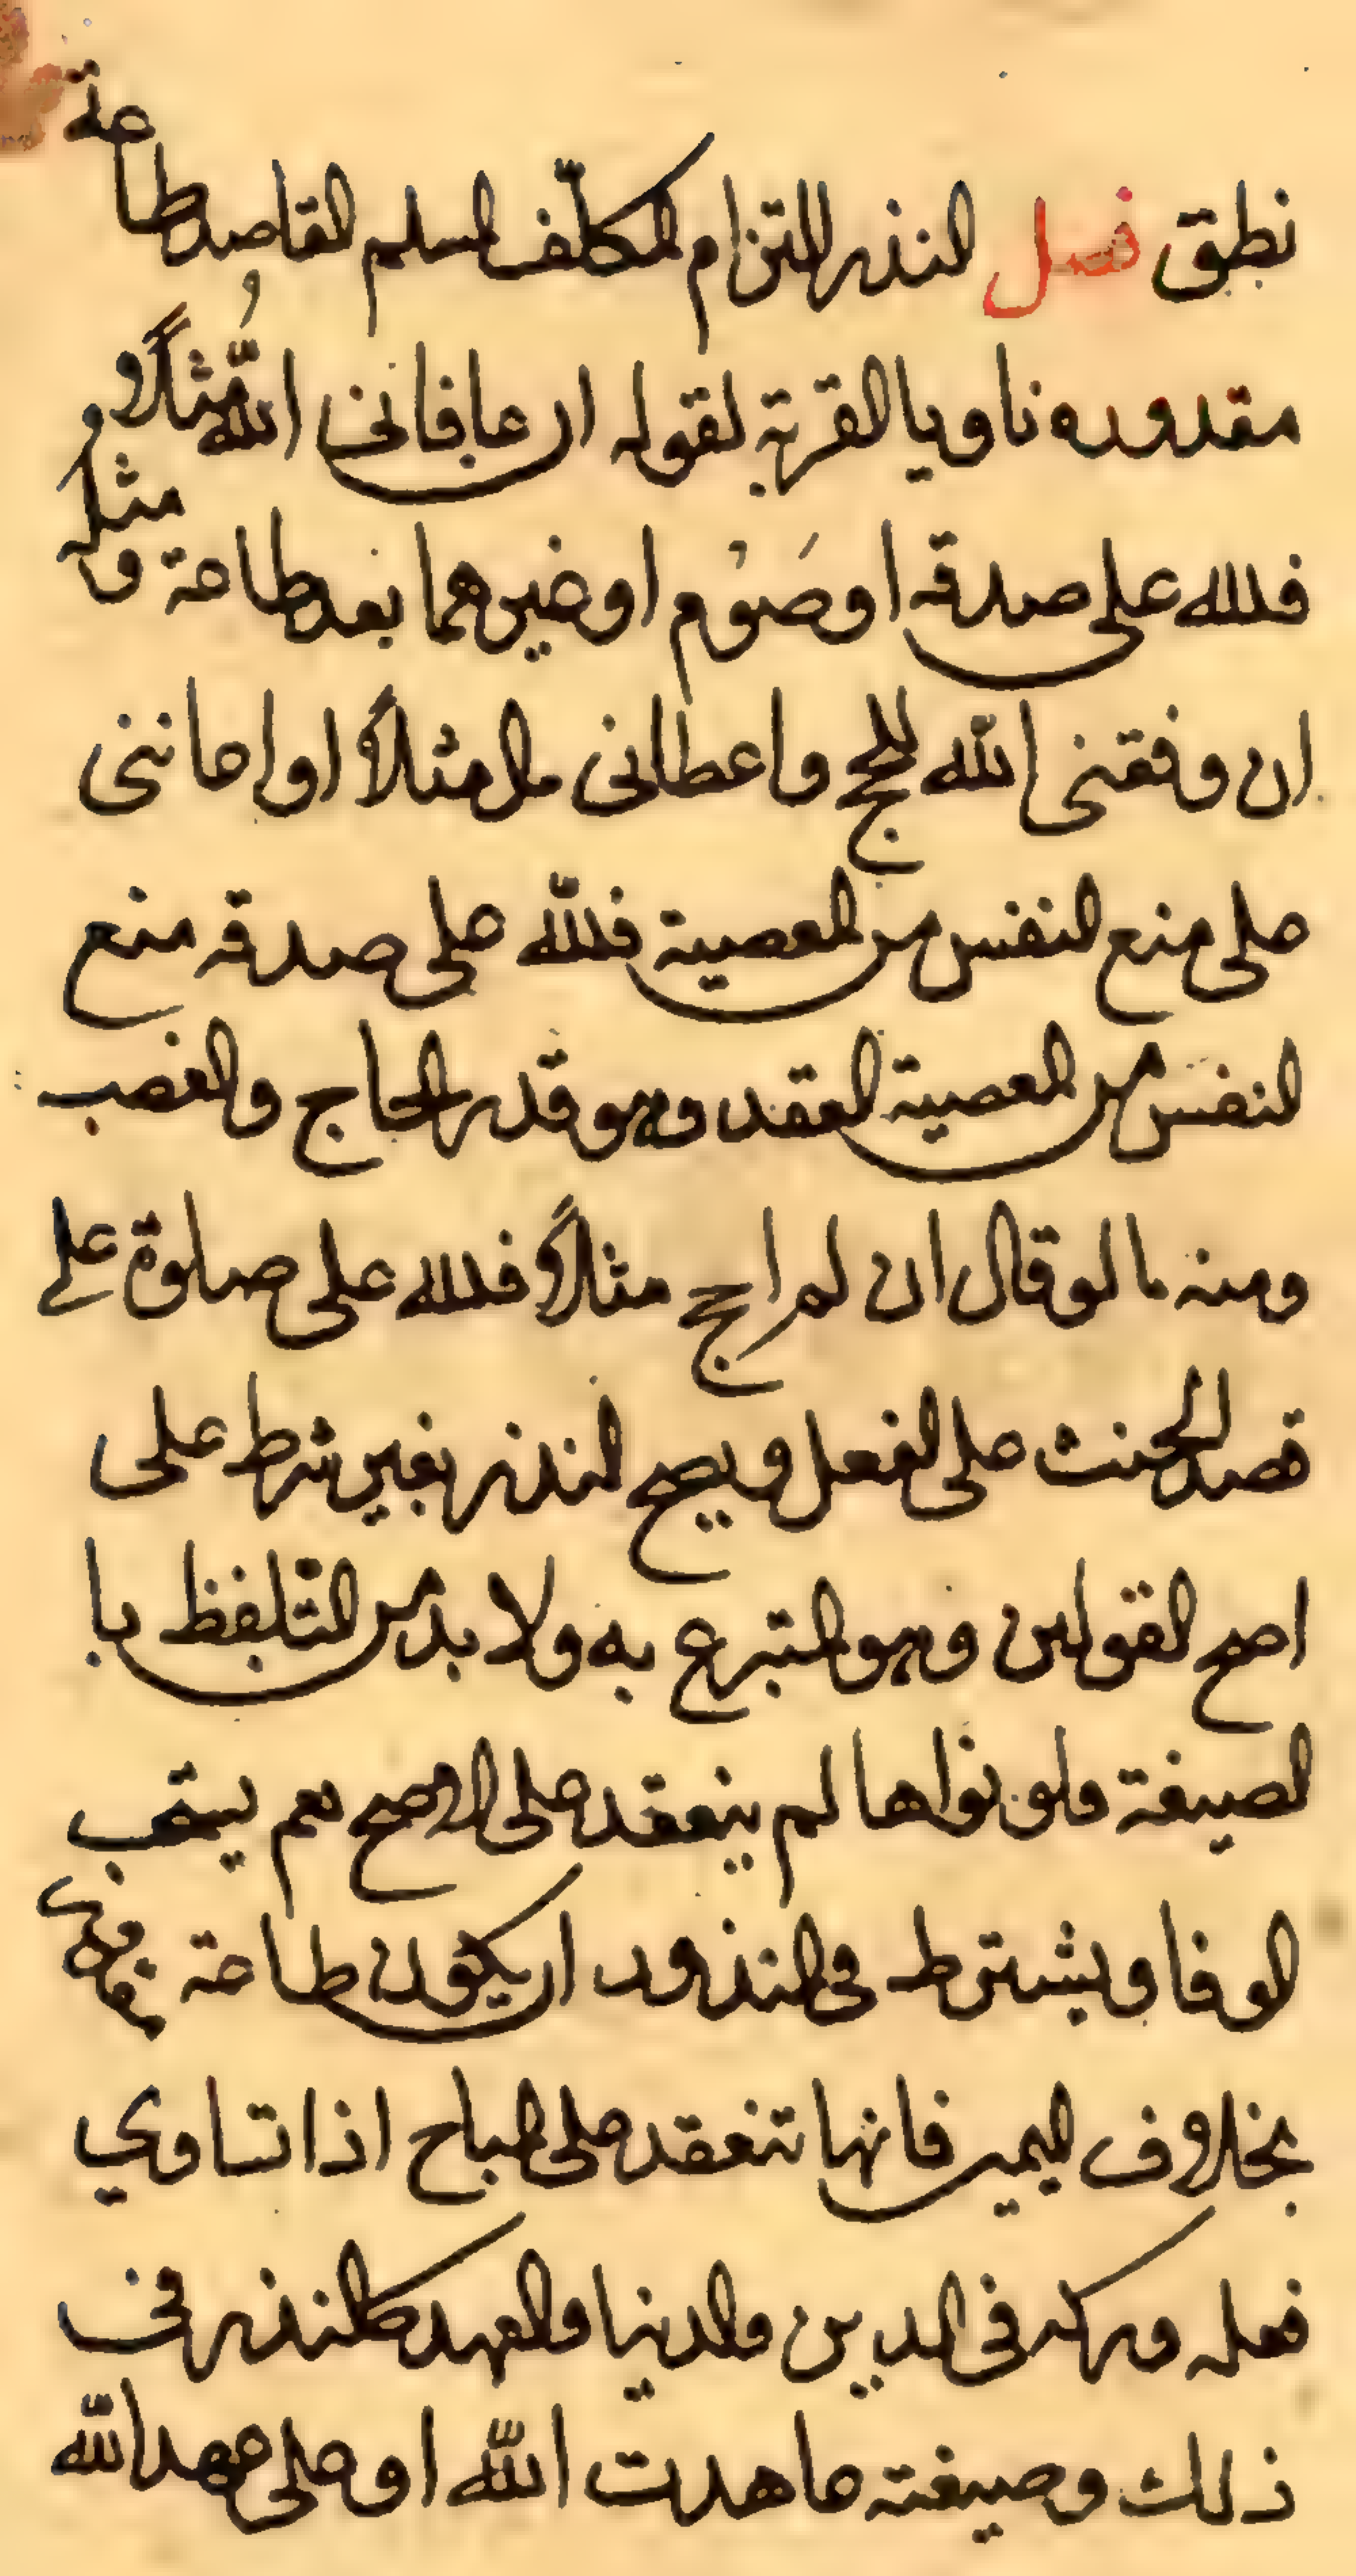 نطق فصل النذر التزام المكلّف المسلم القاصد طاعة
مقدوره ناويا القربة لقوله ان عافانى اللّهُ مثلاً و
فلله على صدقه او صَوْم او غيرهما بعد طاعة و مثله
ان وفقنى اللّه للحج واعطانى مال مثلاً او اعاننى
على منع النفس من المعصية فللّه على صدقه منع
النفس من المعصية العقد وهو قدر الحاج والغضب
ومنه ما لو قال ان لم احج مثلاً فلله على صلوة على
قصد الحنث على الفعل ويصح النذر بغير شرط على
اصح القولين وهو التبرع به ولا بد من التّلفظ با
لصيغة ولو نواها لم ينعقد على الاصح نعم يستحب
الوفا ويشترط فى المنذور ان يكون طاعة
بخلاف اليمين فانها تنعقد على المباح اذا تساوي
فعله وتركه فى الدين والدنيا والعهد كالنذر فى
ذلك وصيغته عاهدت اللّه او على عهد اللّه